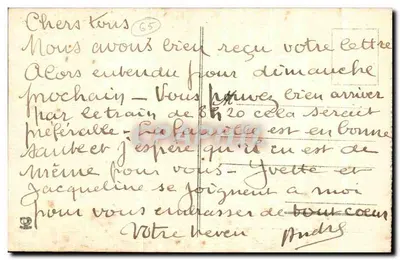 Chers tous
65
Nous avons bien reçu votre lettre
Alors entendu pour dimanche
prochain - Vous pouvez bien arriver
par le train de 8h20 cela serait
préférable - La famille est en bonne
santé et j'espère qu'il en est de
même pour vous - Yvette et
Jacqueline se joignent a moi
pour vous embrasser de tout coeur
Votre neveu André